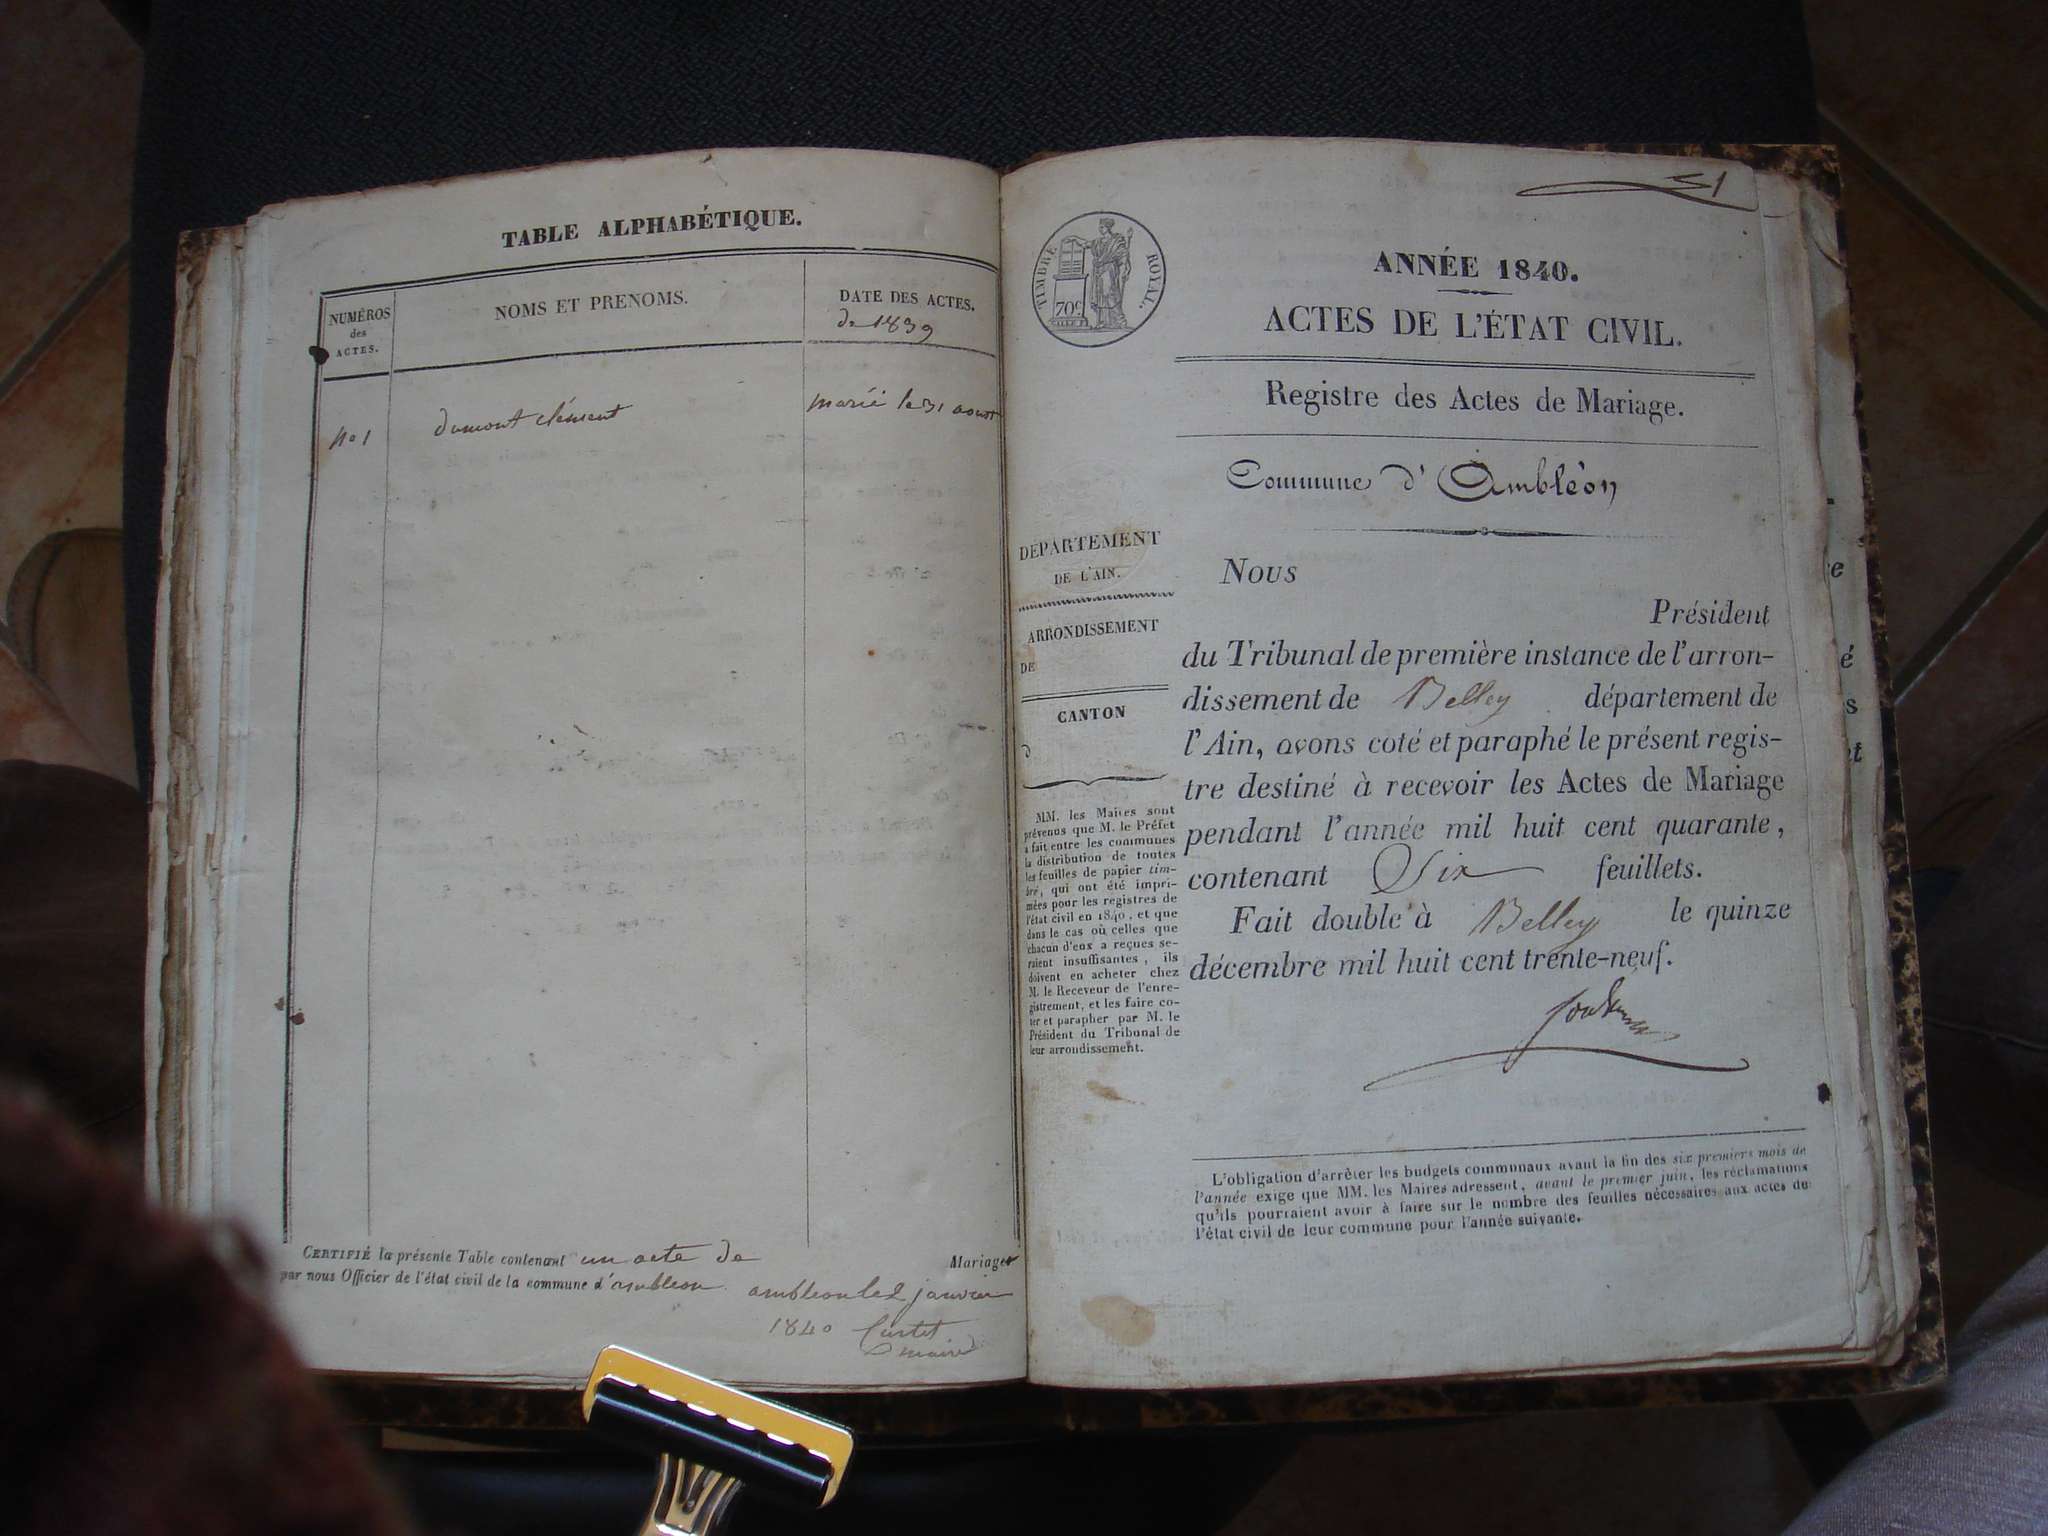 TABLE ALPHABÉTIQUE.
NUMÉROS
des
ACTES.
NOMS ET PRENOMS.
DATE DES ACTES.
de 1839
no 1
dumont clément
marié le 31 aoust
CERTIFIÉ la présente Table contenant un acte de Mariage
par nous Officier de l'état civil de la commune d'ambleon ambleon le 2 janvier
1840
maire
51
TIMBRE ROYAL.
70c
ANNÉE 1840.
ACTES DE L'ÉTAT CIVIL.
Registre des Actes de Mariage.
Commune d'Ambléon
DÉPARTEMENT
DE L'AIN.
ARRONDISSEMENT
DE
CANTON
d
MM. les Maires sont
prévenus que M. le Préfet
a fait entre les communes
la distribution de toutes
les feuilles de papier tim-
bré, qui ont été impri-
mées pour les registres de
l'état civil en 1840, et que
dans le cas où celles que
chacun d'eux a reçues se-
raient insuffisantes, ils
doivent en acheter chez
M. le Receveur de l'enre-
gistrement, et les faire co-
ter et parapher par M. le
Président du Tribunal de
leur arrondissement.
Nous
Président
du Tribunal de première instance de l'arron-
dissement de Belley département de
l'Ain, avons coté et paraphé le présent regis-
tre destiné à recevoir les Actes de Mariage
pendant l'année mil huit cent quarante,
contenant Six feuillets.
Fait double à Belley le quinze
décembre mil huit cent trente-neuf.
L'obligation d'arrêter les budgets communaux avant la fin des six premiers mois de
l'année exige que MM. les Maires adressent, avant le premier juin, les réclamations
qu'ils pourraient avoir à faire sur le nombre des feuilles nécessaires aux actes de
l'état civil de leur commune pour l'année suivante.